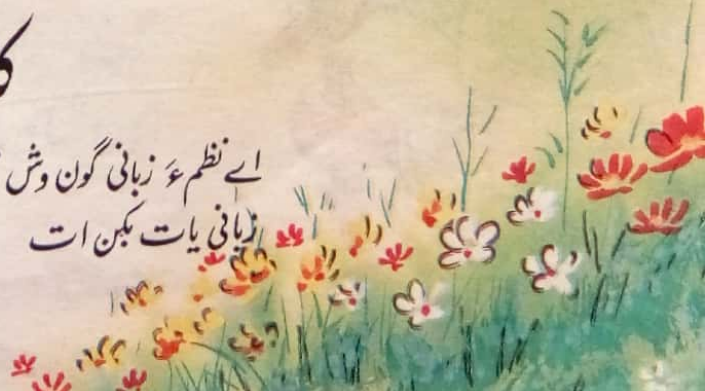 اے نظم ءَ زبانی گون وش
زبانی یات بکن ات